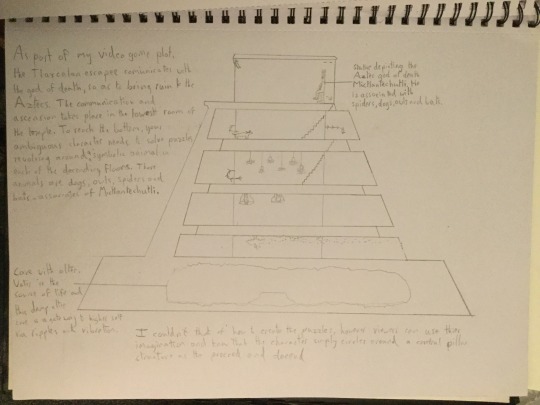 As part of my video game plot,
the Tlaxcalan escapes communicates with
the god of death, so as to bring ruin to the
Aztecs. The communication and
ascension takes place in the lowest room of
the temple. To reach the bottom, your
ambiguous character needs to solve puzzles
revolving around symbolic animals in
each of the descending floors. These
animals are dogs, owls, spiders and
bats, associates of
Statue depicting the
Aztec god of death
who
is associated with
spiders, dogs, owls and bats.
Cave with altar.
Water is the
source of life and
the damp
cave is a gateway to
via ripples and vibration.
I couldn't think of how to create the puzzles, however viewers can use their
imagination and how that the character simply circles around a central pillar
structure as they proceed and descend